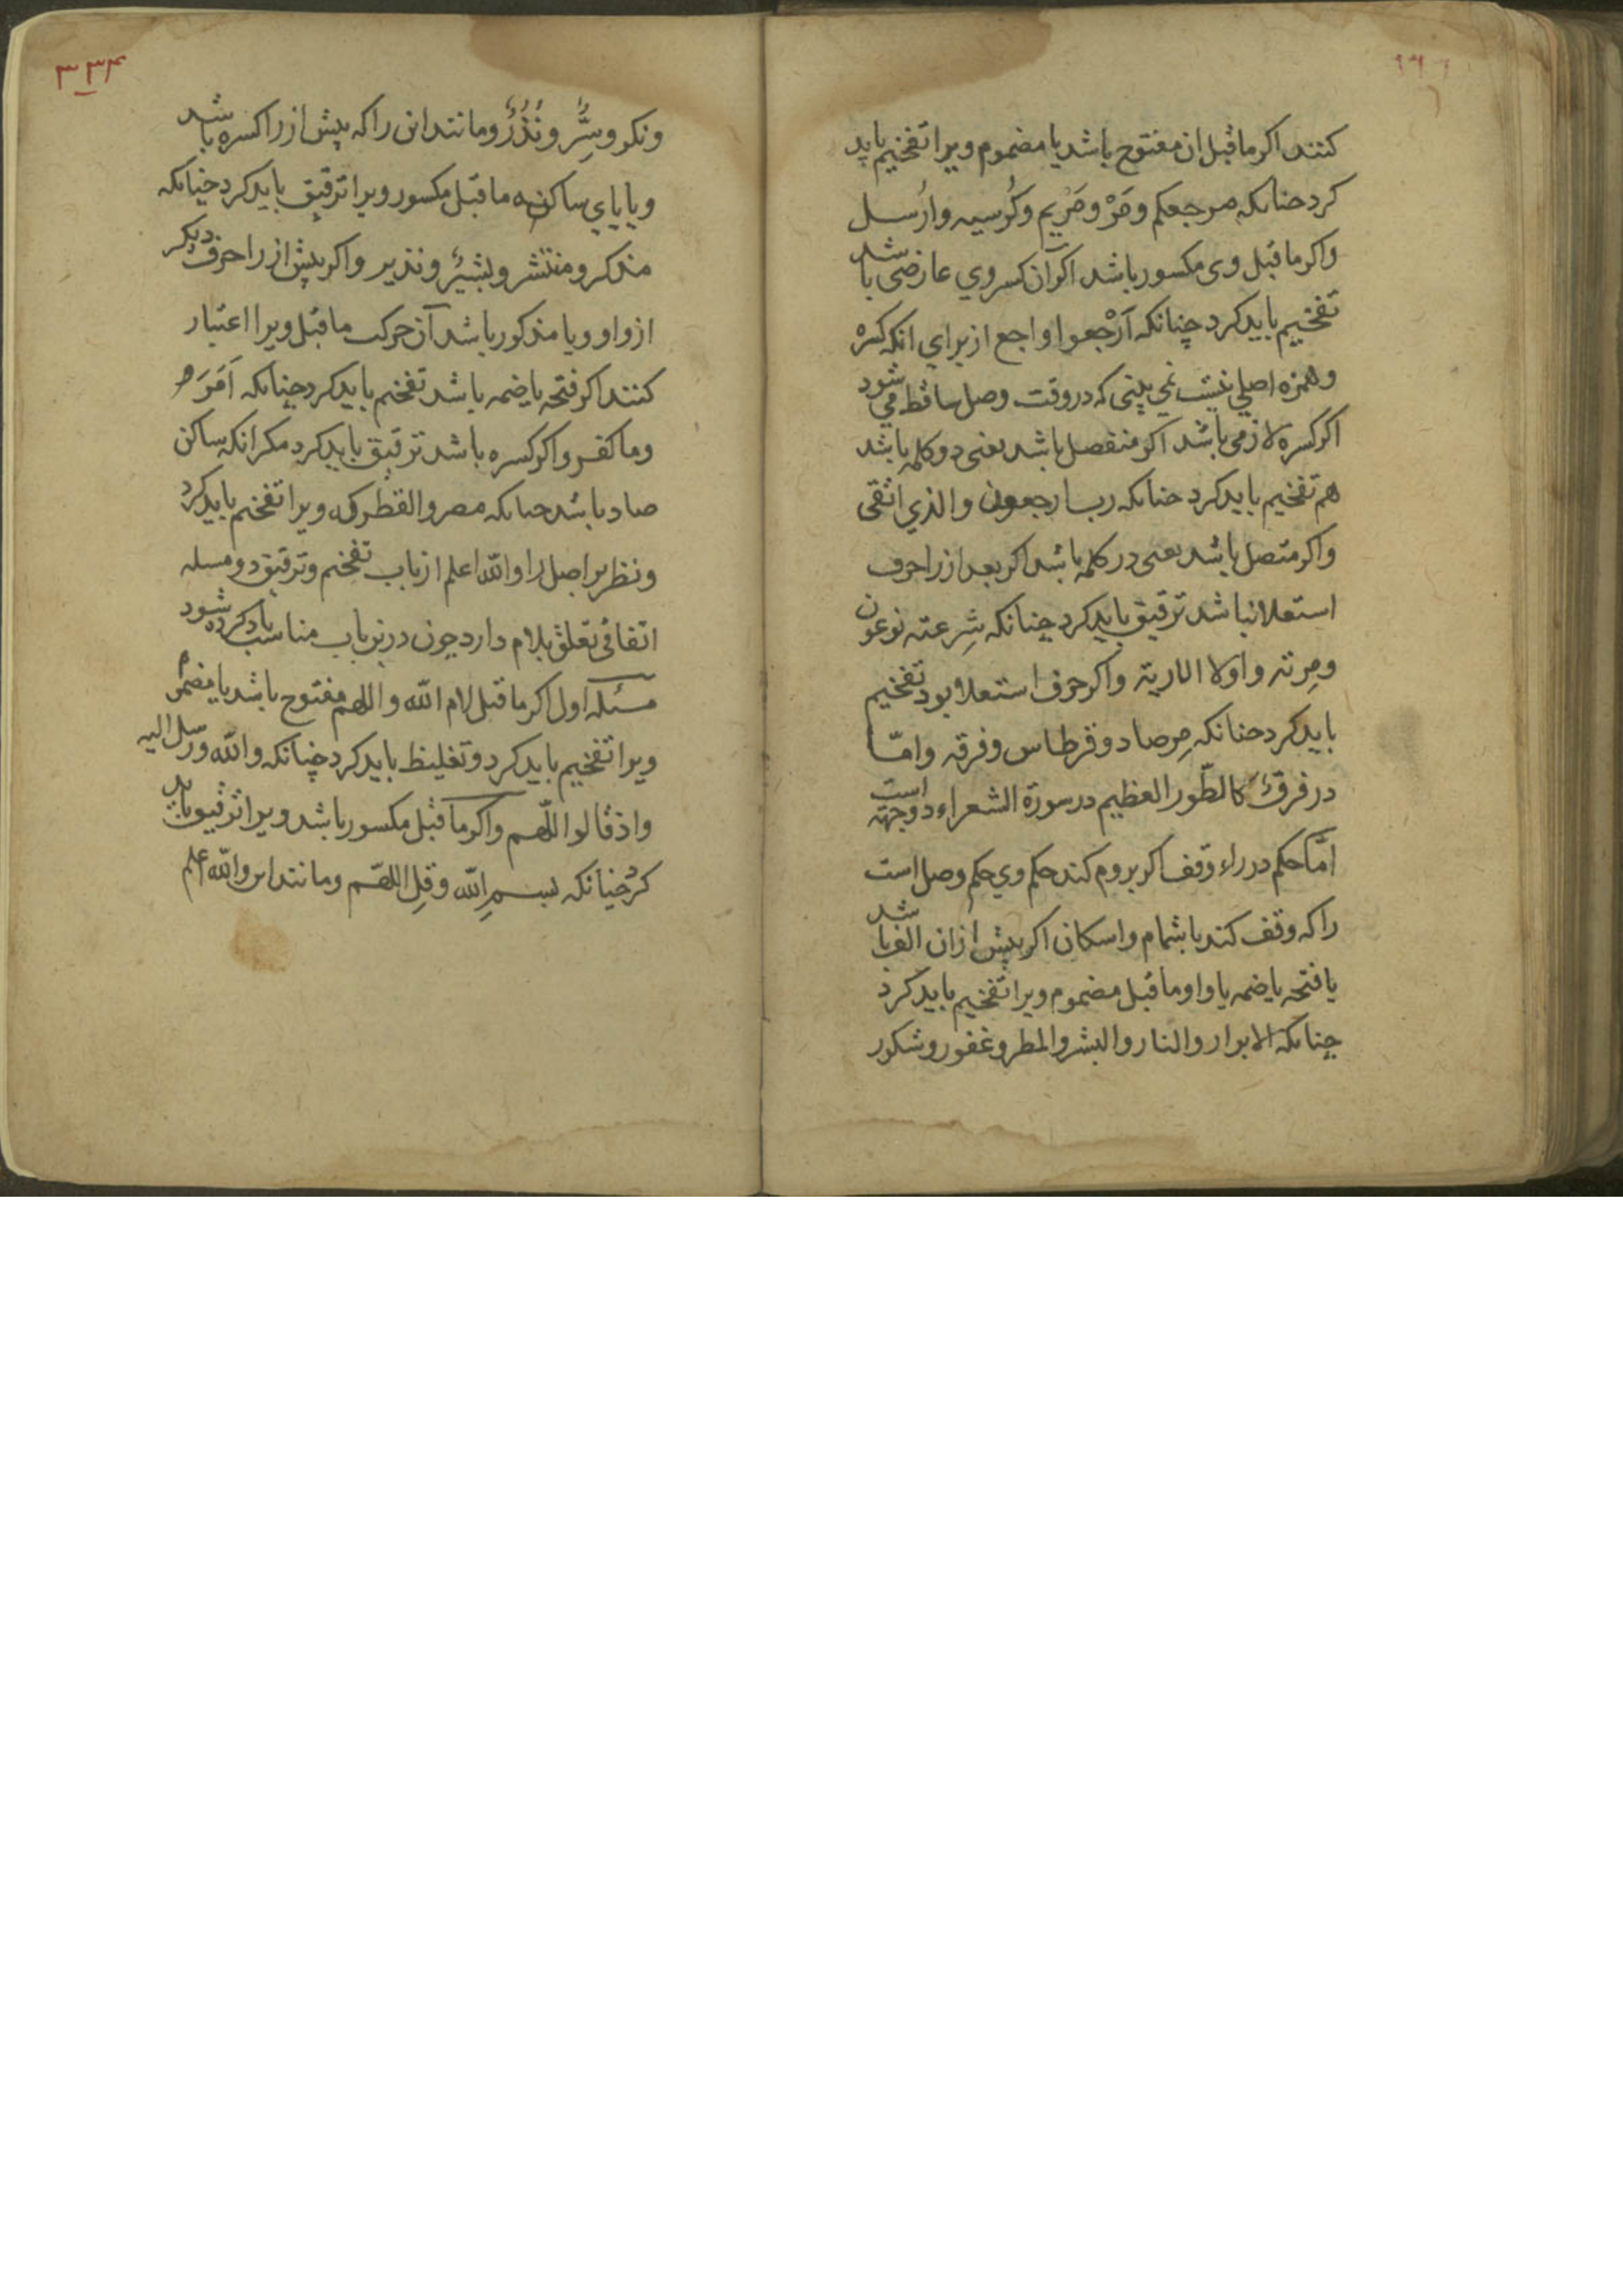 کنند اکر ماقبل ان مفتوح باشد یا مضموم ویرا تفخیم باید
کرد جنانکه مرجعکم ومَرْ ومَرْیم وکُرسیه وارْسل
واکر ماقبل وی مکسور باشد اکر آن کسر وي عارضی باشد
تفخیم باید کرد چنانکه اَرْجعوا او اجع از برای انکه کسره
وهمزه اصلي نیست نمی بینی که در وقت وصل ساقط می شود
اکر کسره لازمی باشد اکر منفصل باشد یعنی دو کلمه باشد
هم تفخیم باید کرد جنانکه رب ارجعون والذي اتقی
واکر متصل باشد یعنی در کلمه باشد اکر بعد از را حرف
استعلا نباشد ترقیق باید کرد چنانکه شِرعته
ومِرته واولا الاربة واکر حرف استعلا بود تفخیم
باید کرد جنانکه مِرصاد وقرطاس وفرقه وامّا
در فرق کالطّور العظیم در سورة الشعراء دو وجهه است
امّا حکم در راء وقف اکر بروم کند حکم وي حکم وصل است
را که وقف کند باشمام واسکان اکر پیش از ان الف باشد
یا فتحه یا ضمه یا واو ماقبل مضموم ویرا تفخیم باید کرد
چنانکه الابرار والنار والبشر والمطر وغفور وشکور
۳۳۴
ونکر وسِّرُ ونُذُرُ ومانند ان را که پیش از را کسره باشد
ویا یاي ساکنه ماقبل مکسور ویرا ترقیق باید کرد چنانکه
مذکر ومنتشر وبشیرُ ونذیر واکر پیش از را حرف دیکر
از واو ویا مذکور باشد آن حرکت ماقبل ویرا اعتبار
کنند اکر فتحه یا ضمه باشد تفخیم باید کرد جنانکه اَمَرَ
وماکفر واکر کسره باشد ترقیق باید کرد مکر انکه ساکن
صاد باشد جنانکه مصر والقطر که ویرا تفخیم باید کرد
ونظر بر اصل را والله اعلم از باب تفخیم وترقیق دو مسله
اتفاقی تعلق بلام دارد چون درین باب مناسب یاد کرده شود
مسئله اول اکر ماقبل لام الله واللهم مفتوح باشد یا مضموم
ویرا تفخیم باید کرد وتغلیظ باید کرد چنانکه والله ورسل الیه
واذ قالوا اللّهم واکر ماقبل مکسور باشد ویرا ترقیق باید
کرد چنانکه بسم الله وقِل اللهّم ومانند این والله اعلم